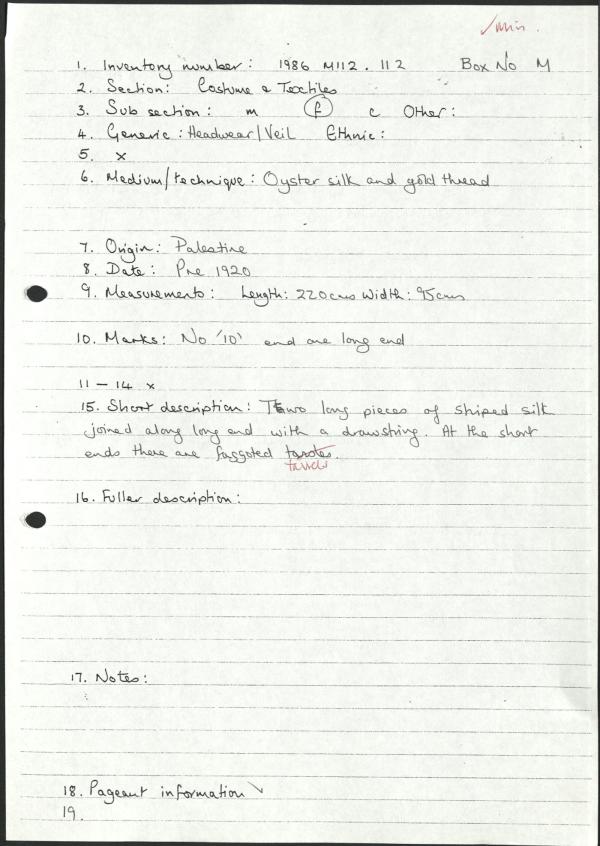 1. Inventory number: 1986 M112.112 Box No M
2. Section: Costume & Textiles
3. Sub section: m f c Other:
4. Generic: Headwear/Veil Ethnic:
5. x
6. Medium/technique: Oyster silk and gold thread
7. Origin: Palestine
8. Date: Pre 1920
9. Measurements: Length: 220cms Width: 95cms
10. Marks: No '10' end one long end
11 - 14 x
15. Short description: Two long pieces of striped silk
joined along long end with a drawstring. At the short
ends there are faggoted
tassels
16. Fuller description:
17. Notes:
18. Pageant information
19.